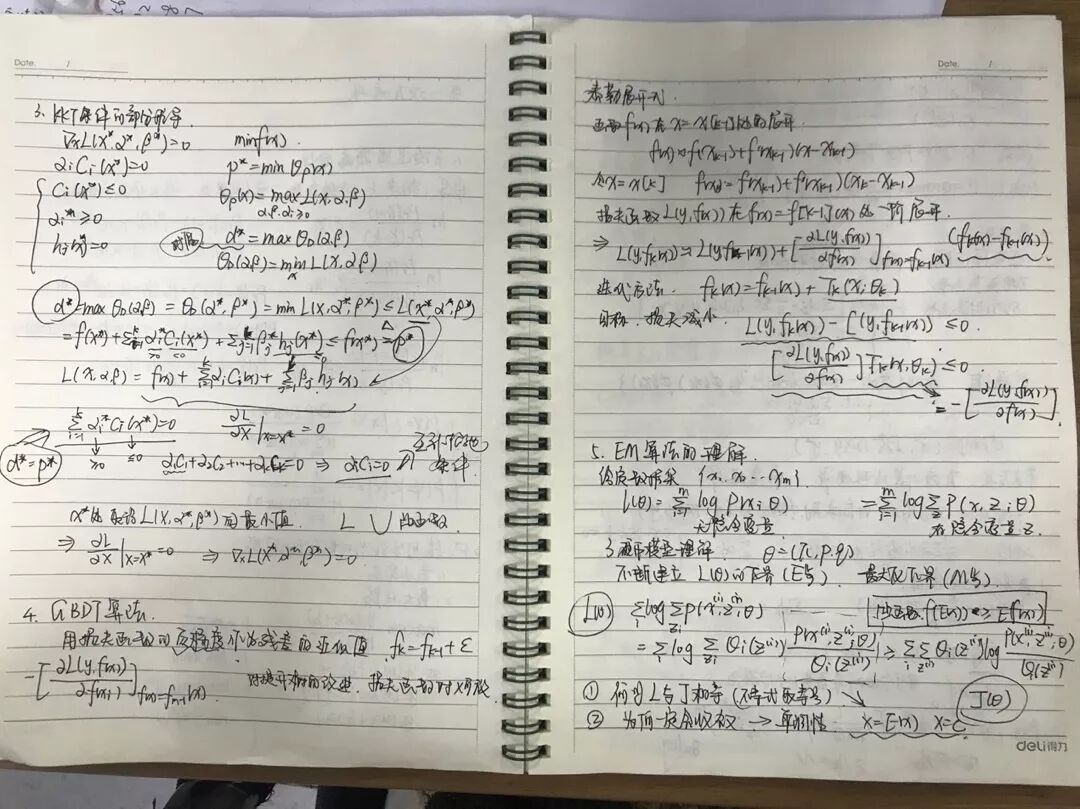 Date. /
3. KKT条件的部分推导
∇xL(x*, α*, β*)=0 minf(x)
αiCi(x*)=0 p*=minθp(x)
Ci(x*)≤0 θp(x)=max L(x,α,β)
α,β,αi≥0
αi*≥0
对偶 d*=maxθD(α,β)
hj(x*)=0
θD(α,β)=min L(x,α,β)
x
d*=maxθD(α,β)=θD(α*,β*)=min L(x,α*,β*)≤L(x*,α*,β*)
=f(x*)+Σαi*Ci(x*)+Σβj*hj(x*)≤f(x*)=p*
≥0 ≤0
L(x,α,β)=f(x)+ΣαiCi(x)+Σβjhj(x)
Σαi*Ci(x*)=0 ∂L/∂x|x=x*=0
≥0 ≤0
d*=p* α1C1+α2C2+…+αkCk=0 ⇒ αiCi=0 互补松弛条件
x*能取得L(x,α*,β*)的最小值. L 凸函数
⇒ ∂L/∂x|x=x*=0 ⇒ ∇xL(x*,α*,β*)=0
4. GBDT算法
用损失函数的负梯度作为残差的近似值. fk=fk-1+ε
-[∂L(y,f(x))/∂f(x)]f(x)=fm-1(x) 对提升树的改进. 损失函数对x可微
Date. /
泰勒展开式.
函数f(x)在x=x[k-1]处的展开
f(x)≈f(xk-1)+f'(xk-1)(x-xk-1)
令x=x[k] f(xk)=f(xk-1)+f'(xk-1)(xk-xk-1)
损失函数L(y,f(x))在f(x)=f[k-1](x)处一阶展开.
⇒ L(y,fk(x))≈L(y,fk-1(x))+[∂L(y,f(x))/∂f(x)]f(x)=fk-1(x) (fk(x)-fk-1(x))
迭代方法. fk(x)=fk-1(x)+Tk(x;θk)
目标. 损失减小. L(y,fk(x))-L(y,fk-1(x))≤0.
[∂L(y,f(x))/∂f(x)]Tk(x,θk)≤0
=-[∂L(y,f(x))/∂f(x)]
5. EM算法的理解.
给定数据集 {x1,x2…xm}
l(θ)=Σlog p(x;θ) =Σlog Σp(x,z;θ)
无隐含变量 有隐含变量z.
3硬币模型理解 θ=(π,p,q)
不断建立L(θ)的下界(E步). 最大化下界(M步).
L(θ) Σlog Σp(x(i),z(i);θ) 凹函数.f(E(x))≥E(f(x))
=Σlog ΣQi(z(i)) p(x(i),z(i);θ)/Qi(z(i)) ≥ ΣΣQi(z(i))log p(x(i),z(i);θ)/Qi(z(i))
① 何时L与J相等(不等式取等号) J(θ)
② 为何一定会收敛 → 单调性. x=E(x) x=C
deli得力